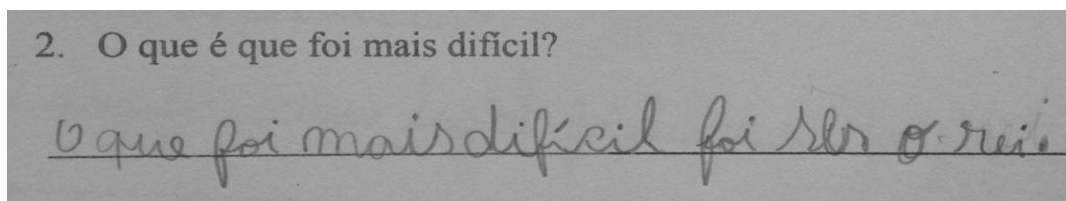 2. O que é que foi mais difícil?
O que foi mais difícil foi ser o rei.